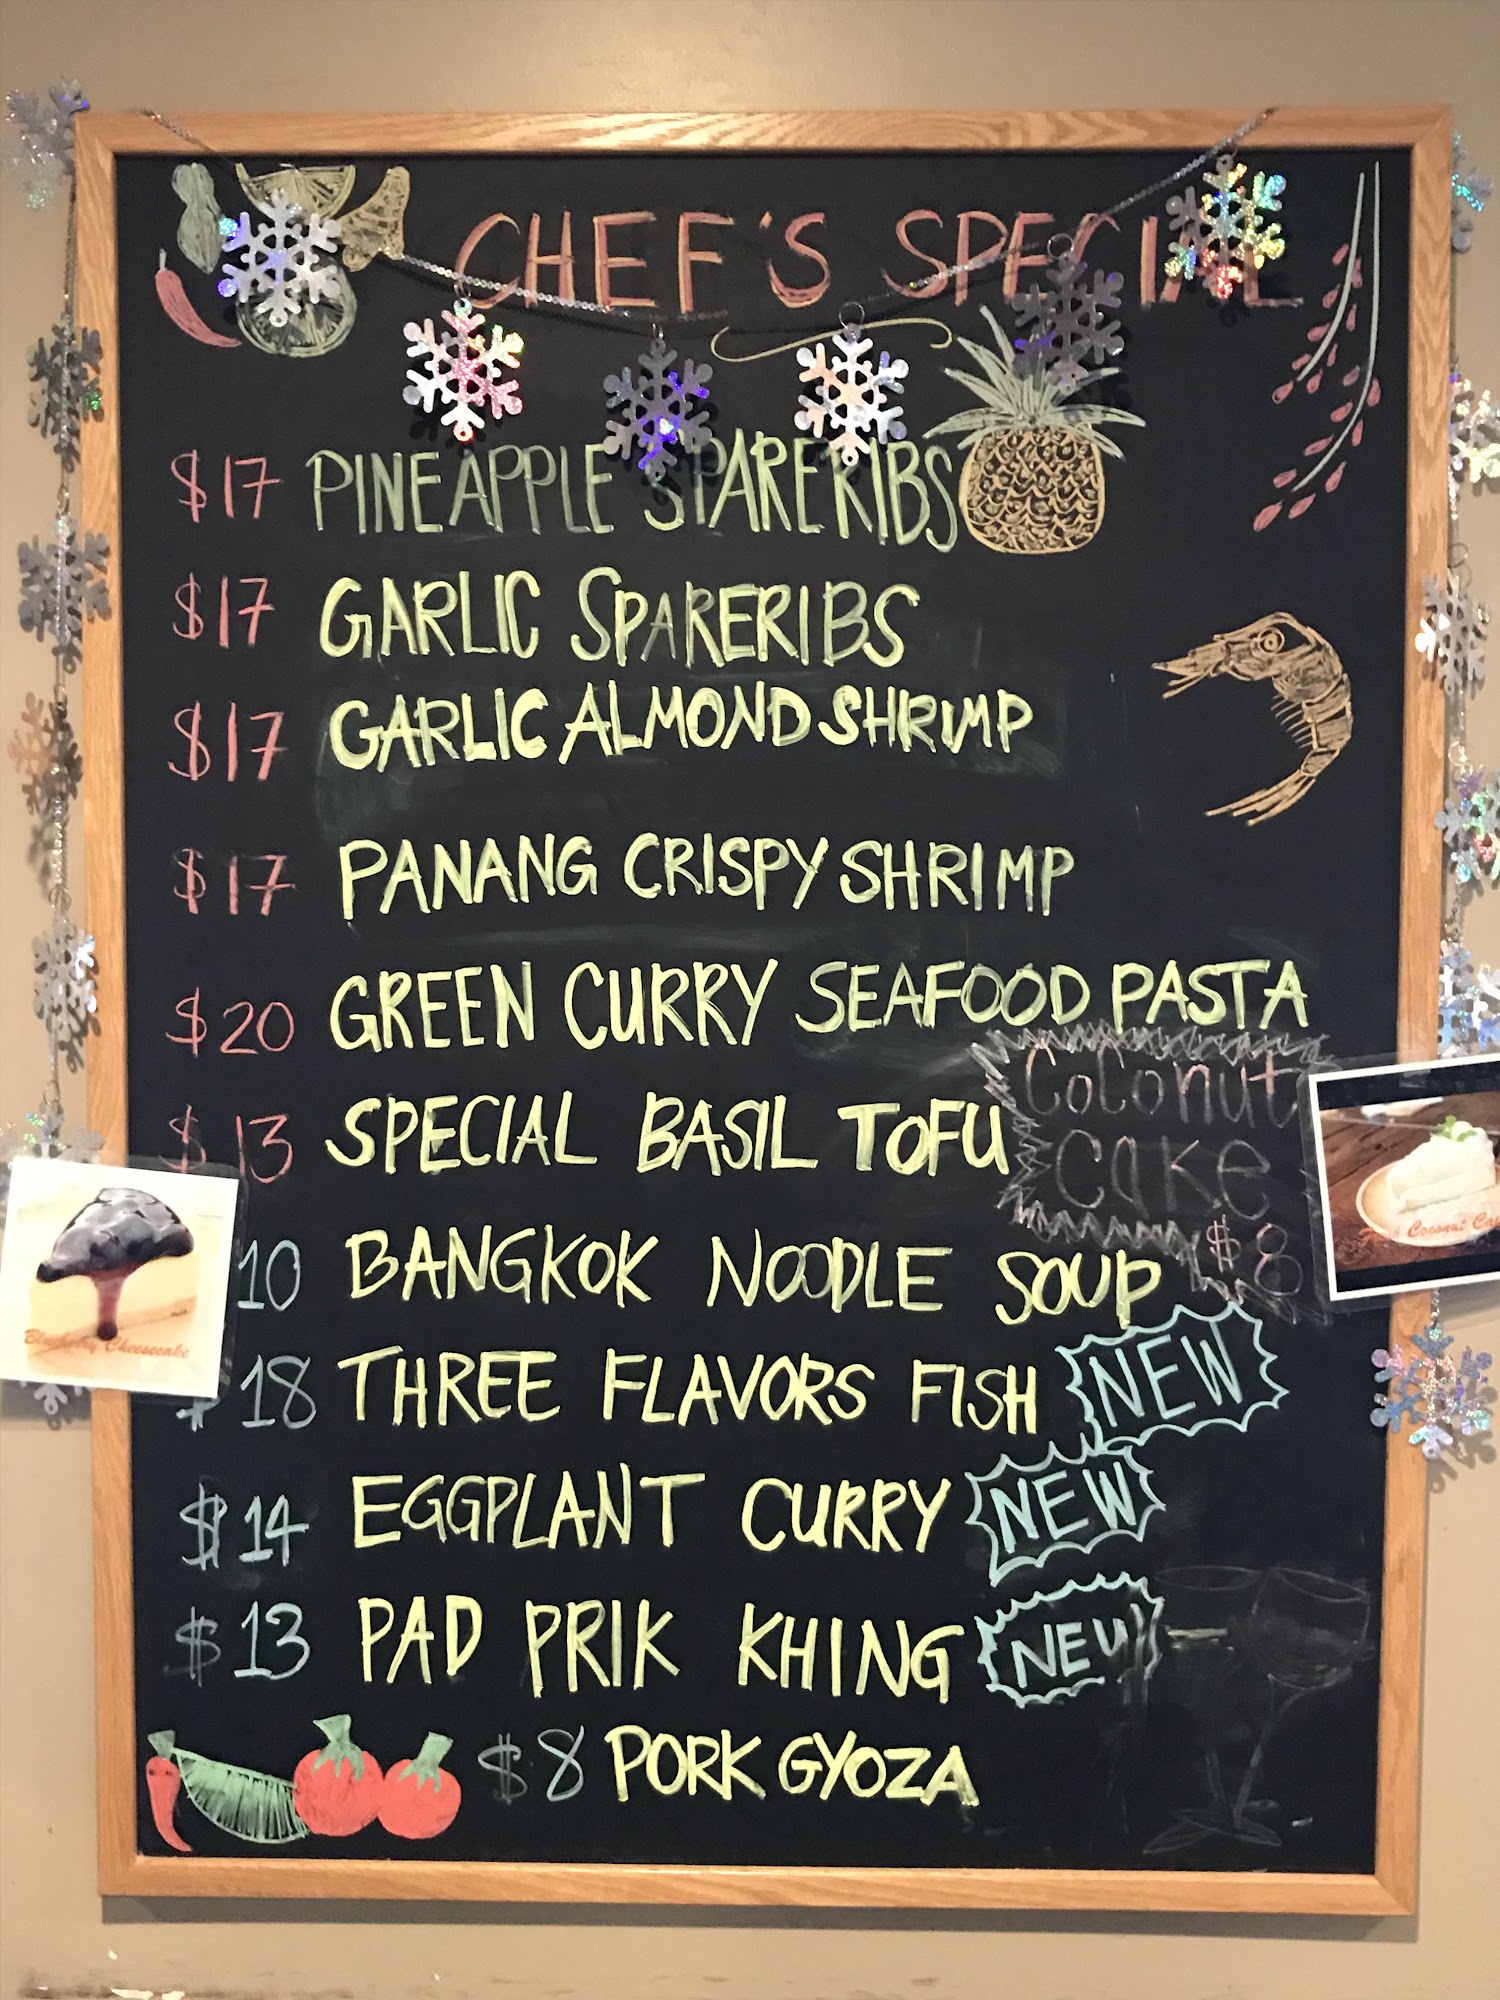 CHEF'S SPECIAL
$17 PINEAPPLE SPARERIBS
$17 GARLIC SPARERIBS
$17 GARLIC ALMOND SHRIMP
$17 PANANG CRISPY SHRIMP
$20 GREEN CURRY SEAFOOD PASTA
$13 SPECIAL BASIL TOFU
Coconut
Cake
$8
10 BANGKOK NOODLE SOUP
$18 THREE FLAVORS FISH NEW
$14 EGGPLANT CURRY NEW
$13 PAD PRIK KHING NEW
$8 PORK GYOZA
Blueberry Cheesecake
Coconut